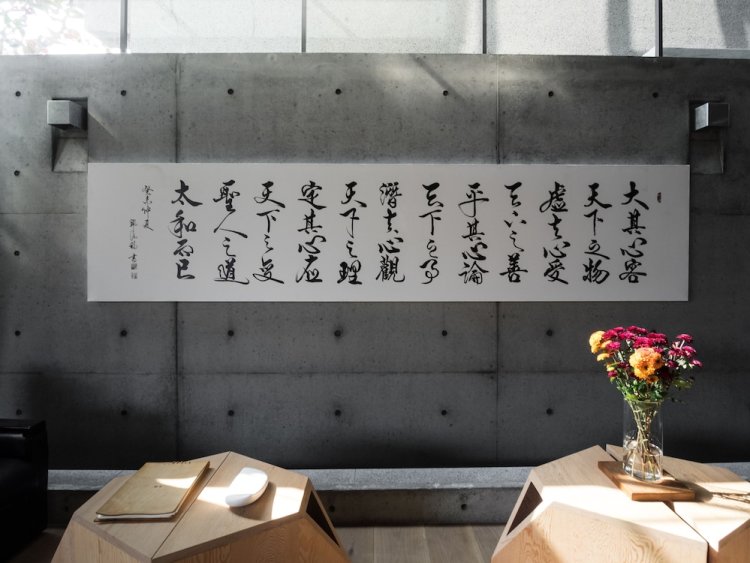 大其心容
天下之物
虛其心受
天下之善
平其心論
天下之事
潛其心觀
天下之理
定其心應
天下之變
聖人之道
太和而已
癸未仲夏